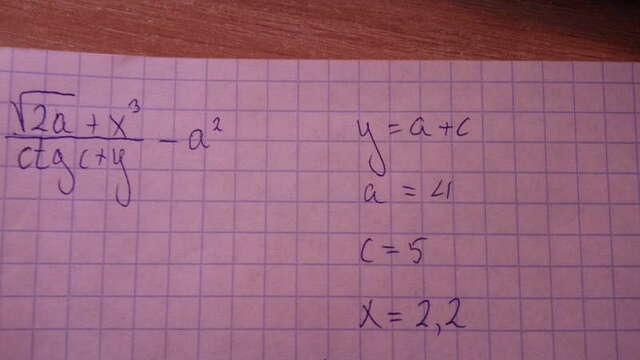 √2a + x³
ctg c+y
- a²
y = a + c
a = 4
c = 5
x = 2,2